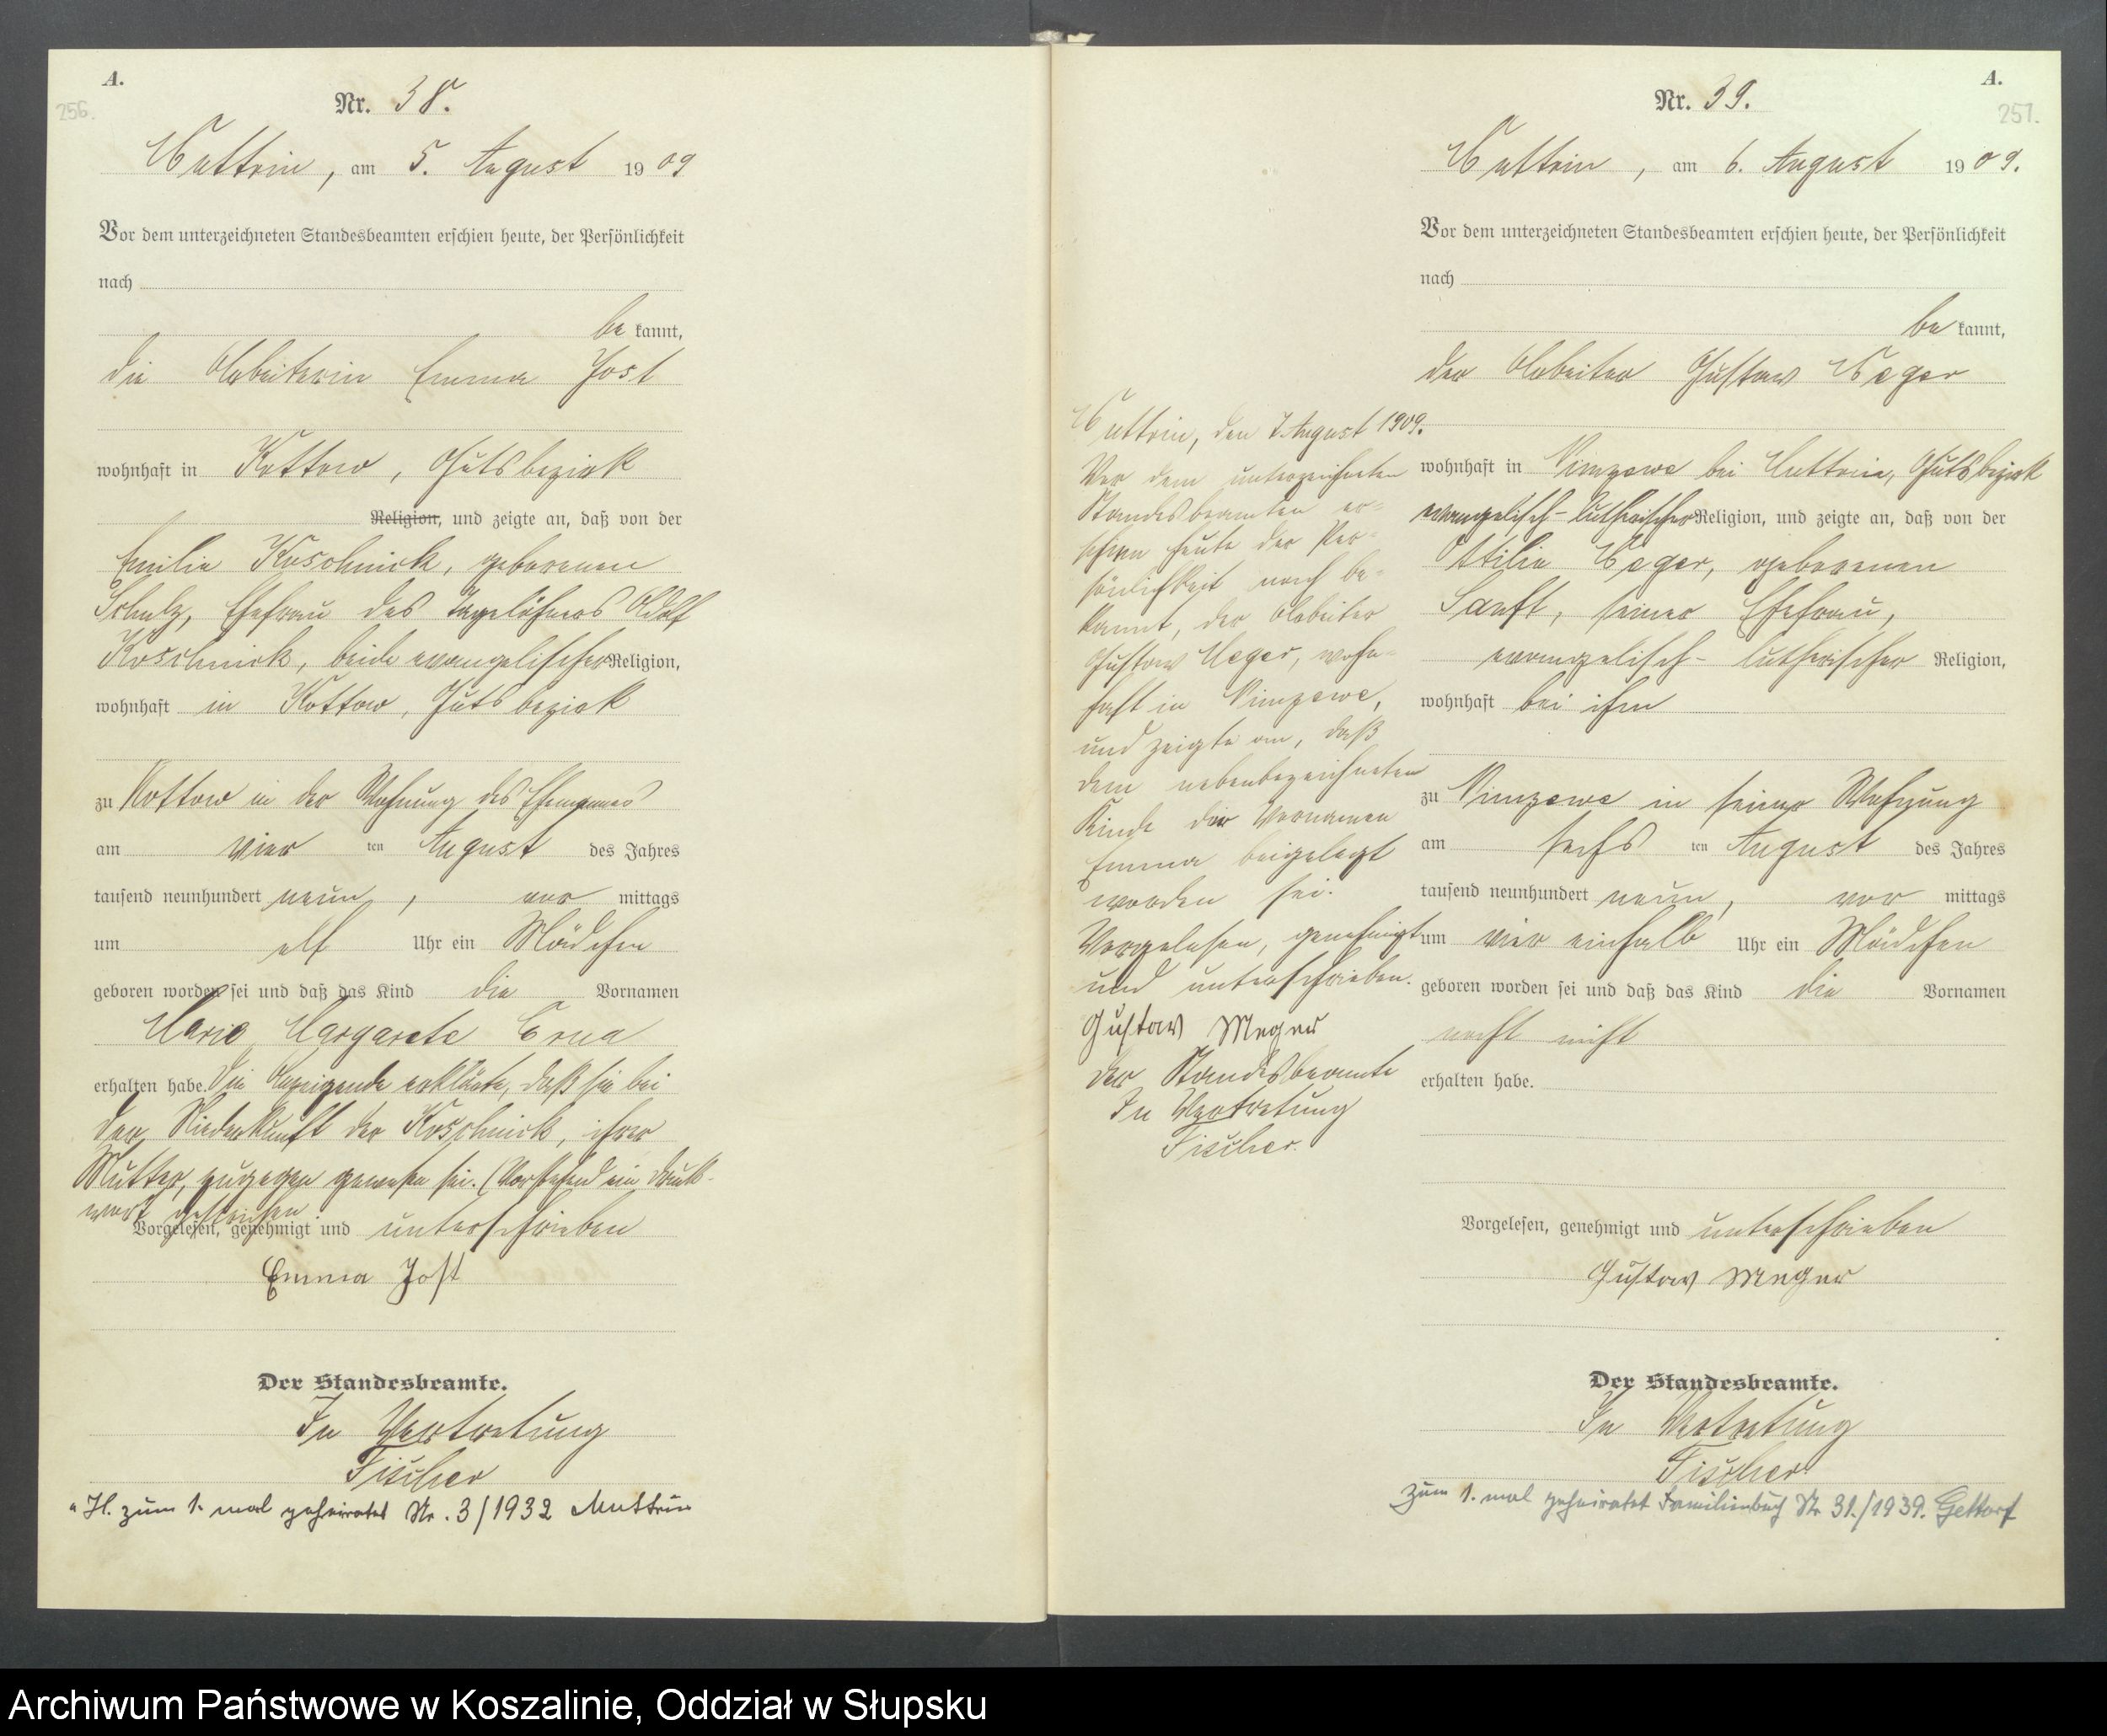 A.
256.
Nr. 38.
Muttrin, am 5. August 1909
Vor dem unterzeichneten Standesbeamten erschien heute, der Persönlichkeit
nach
be kannt,
die Arbeiterin Emma Jost
wohnhaft in Kottow, Gutsbezirk
Religion, und zeigte an, daß von der
Emilie Koschnick, geborenen
Schulz, Ehefrau des Tagelöhners Adolf
Koschnick, beide evangelischer Religion,
wohnhaft in Kottow, Gutsbezirk
zu Kottow in der Wohnung des Ehemannes
am vier ten August des Jahres
tausend neunhundert neun, vor mittags
um elf Uhr ein Mädchen
geboren worden sei und daß das Kind die Vornamen
Marie Margarete Erna
erhalten habe. Die Anzeigende erklärte, daß sie bei
der Niederkunft der Koschnick, ihrer
Mutter, zugegen gewesen sei. (Vorstehend ein Druck-
wort gestrichen.
Vorgelesen, genehmigt und unterschrieben
Emma Jost
Der Standesbeamte.
In Vertretung
Fischer
H. zum 1. mal geheiratet Nr. 3/1932 Muttrin
A.
257.
Nr. 39.
Muttrin, am 6. August 1909.
Vor dem unterzeichneten Standesbeamten erschien heute, der Persönlichkeit
nach
be kannt,
der Arbeiter Gustav Meger
wohnhaft in Nimzewe bei Muttrin, Gutsbezirk
evangelisch-lutherischer Religion, und zeigte an, daß von der
Ottilie Meger, geborenen
Sanft, seiner Ehefrau,
evangelisch-lutherischer Religion,
wohnhaft bei ihm
zu Nimzewe in seiner Wohnung
am sechs ten August des Jahres
tausend neunhundert neun, vor mittags
um vier einhalb Uhr ein Mädchen
geboren worden sei und daß das Kind die Vornamen
noch nicht
erhalten habe.
Vorgelesen, genehmigt und unterschrieben
Gustav Meger
Der Standesbeamte.
In Vertretung
Fischer
zum 1. mal geheiratet Familienbuch Nr 31./1939. Gettorf
Muttrin, den 7. August 1909.
Vor dem unterzeichneten
Standesbeamten er-
schien heute der Per-
sönlichkeit nach be-
kannt, der Arbeiter
Gustav Meger, wohn-
haft in Nimzewe,
und zeigte an, daß
dem nebenbezeichneten
Kinde der Vornamen
Emma beigelegt
worden sei.
Vorgelesen, genehmigt
und unterschrieben.
Gustav Meger
Der Standesbeamte
In Vertretung
Fischer.
Archiwum Państwowe w Koszalinie, Oddział w Słupsku